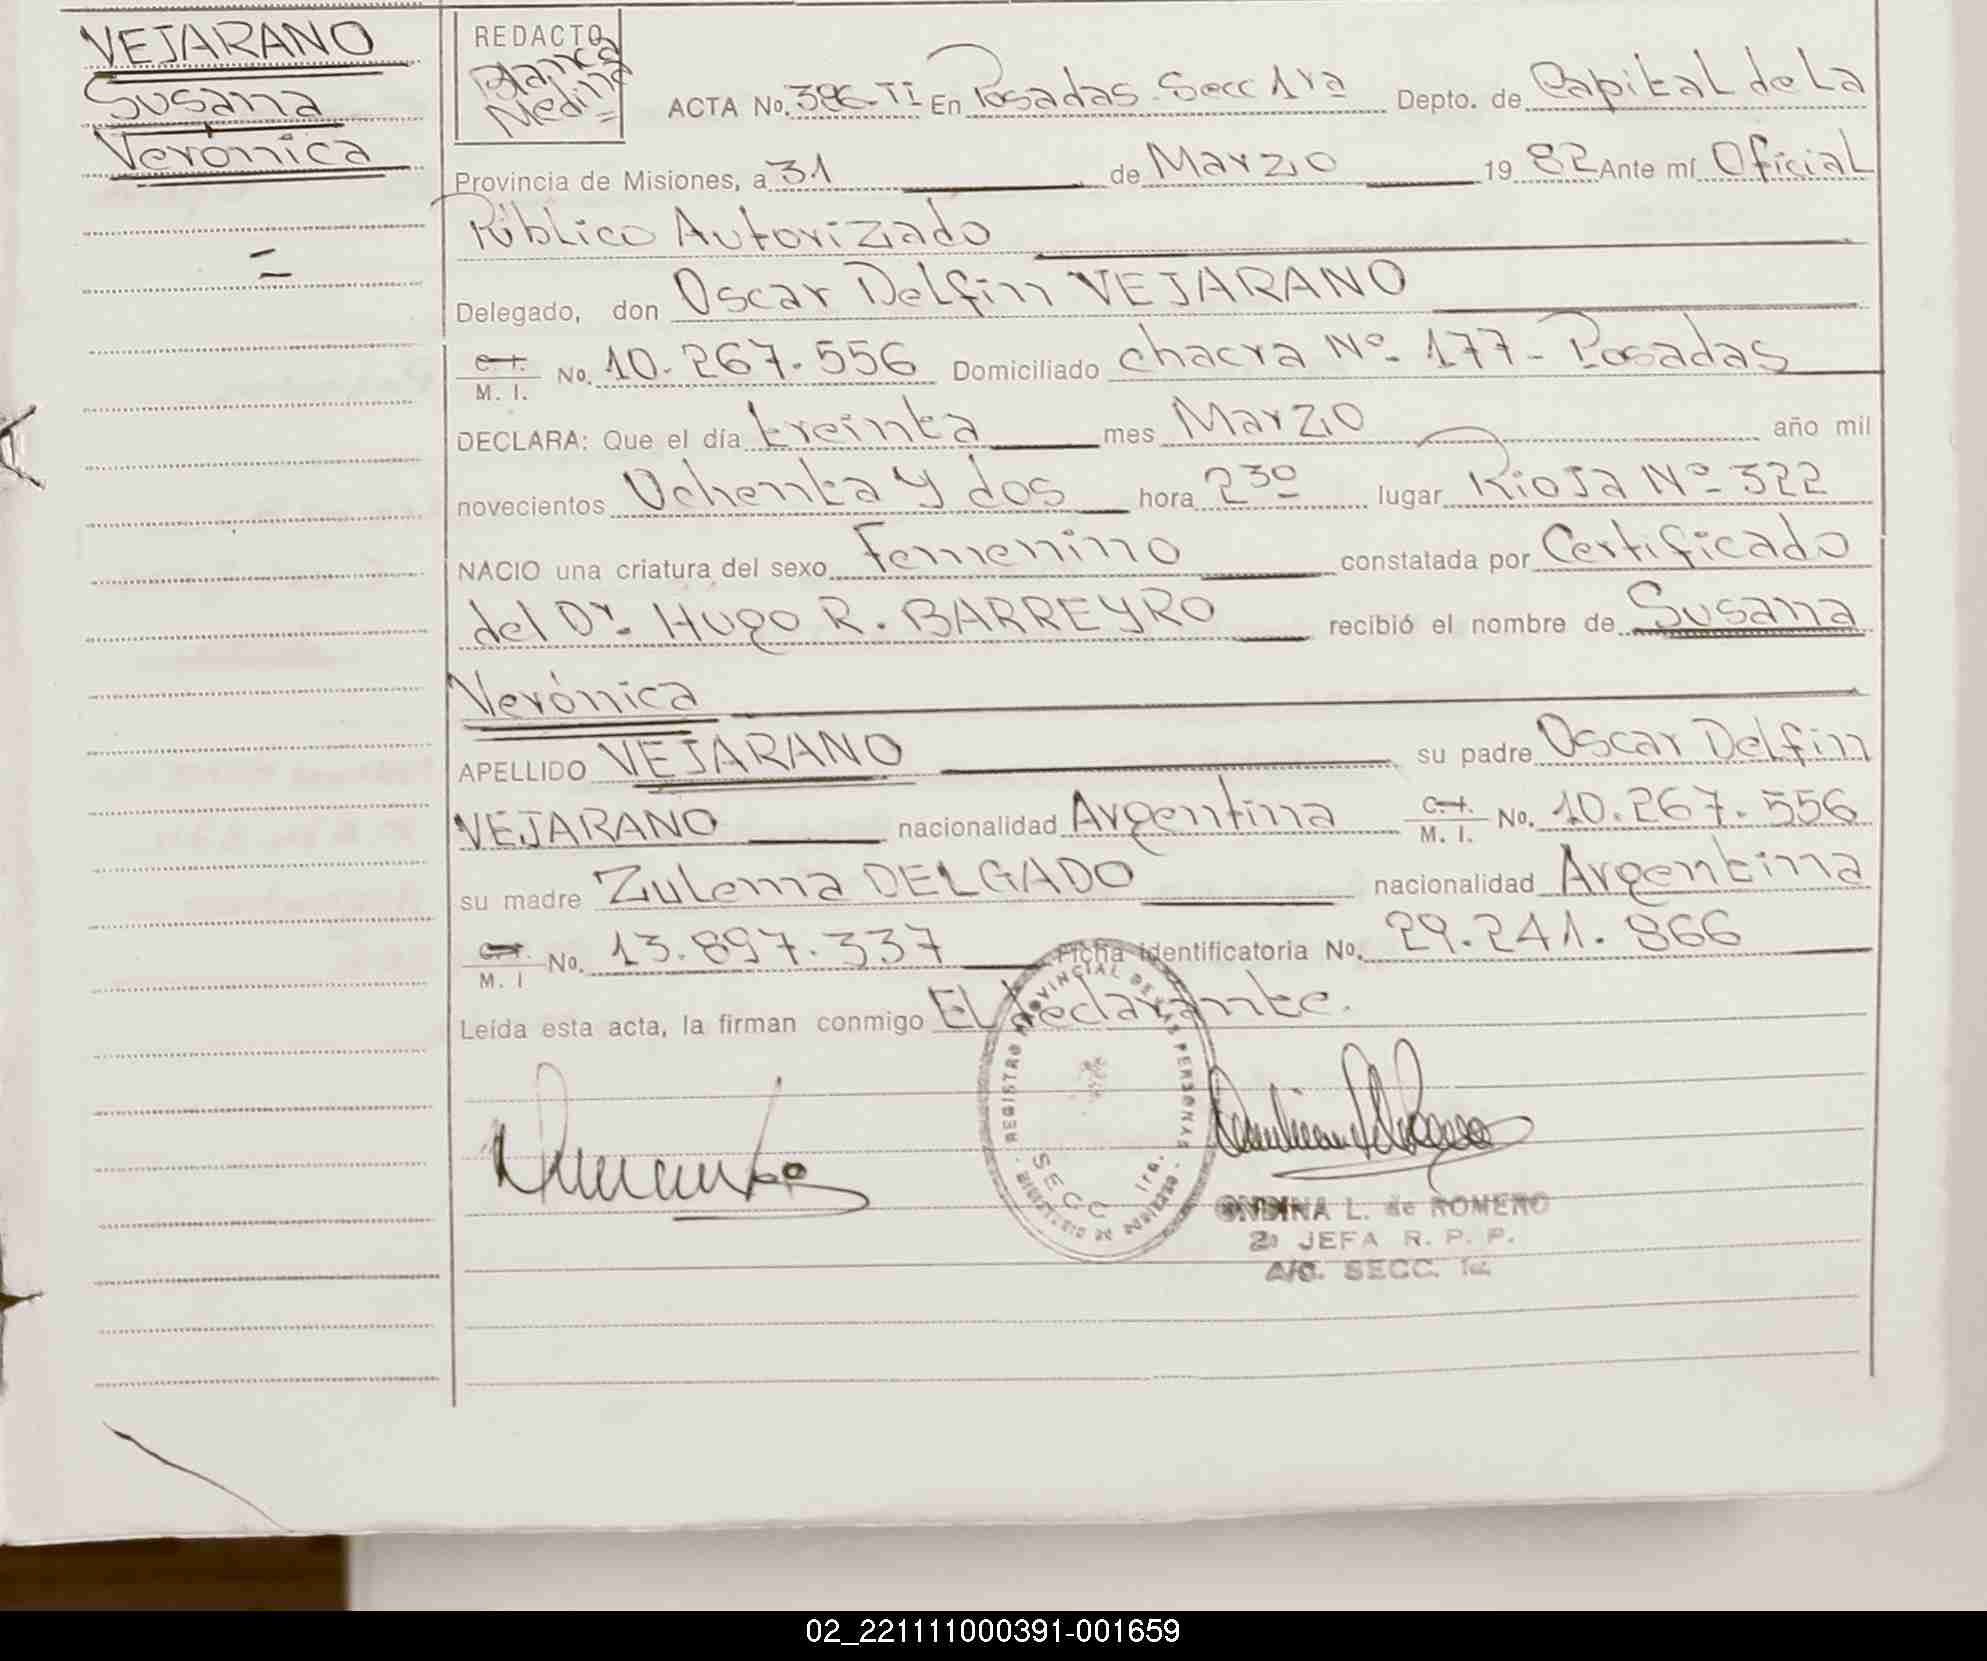 VEJARANO
Susana
Verónica
REDACTO
Blanca
Medina
ACTA No. 396-TI En Posadas Secc 1ra Depto. de Capital de La
Provincia de Misiones, a 31 de Marzo 19 82 Ante mí Oficial
Público Autorizado
Delegado, don Oscar Delfin VEJARANO
C.I. M. I. No. 10.267.556 Domiciliado chacra Nº 177- Posadas
DECLARA: Que el día treinta mes Marzo año mil
novecientos Ochenta y dos hora 2³⁰ lugar Rioja Nº 322
NACIO una criatura del sexo Femenino constatada por Certificado
del Dr. Hugo R. BARREYRO recibió el nombre de Susana
Verónica
APELLIDO VEJARANO su padre Oscar Delfin
VEJARANO nacionalidad Argentina C.I. M. I. No. 10.267.556
su madre Zulema DELGADO nacionalidad Argentina
C.I. M. I No. 13.897.337 Ficha identificatoria No. 29.241.866
Leída esta acta, la firman conmigo El declarante.
REGISTRO PROVINCIAL DE LAS PERSONAS
SECC 1ra.
ONDINA L. de ROMERO
2º JEFA R. P. P.
A/C. SECC. 1ª
02_221111000391-001659